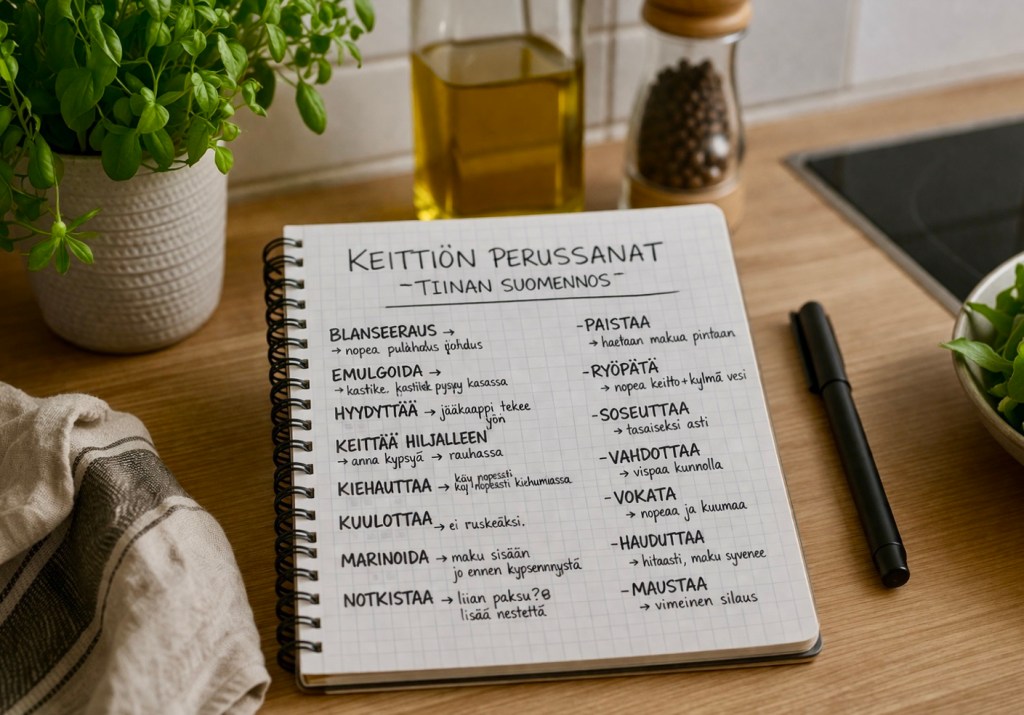 KEITTIÖN PERUSSANAT
-TIINAN SUOMENNOS-
BLANSEERAUS →
→ nopea pulahdus ijohdus
EMULGOIDA →
→ kastike. kastilek pysyy kasassa
HYYDYTTÄÄ → jääkaappi tekee
yön
KEITTÄÄ HILJALLEEN
→ anna kypsyä → rauhassa
KIEHAUTTAA → käy nopessti
nopeasti kiehumiassa
KUULOTTAA → ei ruskeäksi.
MARINOIDA → maku sisään
jo ennen kypsennnystä
NOTKISTAA → liian paksu?
lisää nestettä
-PAISTAA
→ haetaan makua pintaan
-RYÖPÄTÄ
→ nopea keitto+kylmä vesi
-SOSEUTTAA
→ tasaiseksi asti
-VAHDOTTAA
→ vispaa kunnolla
-VOKATA
→ nopeaa ja kuumaa
-HAUDUTTAA
→ hitaasti, maku syvenee
-MAUSTAA
→ vimeinen silaus